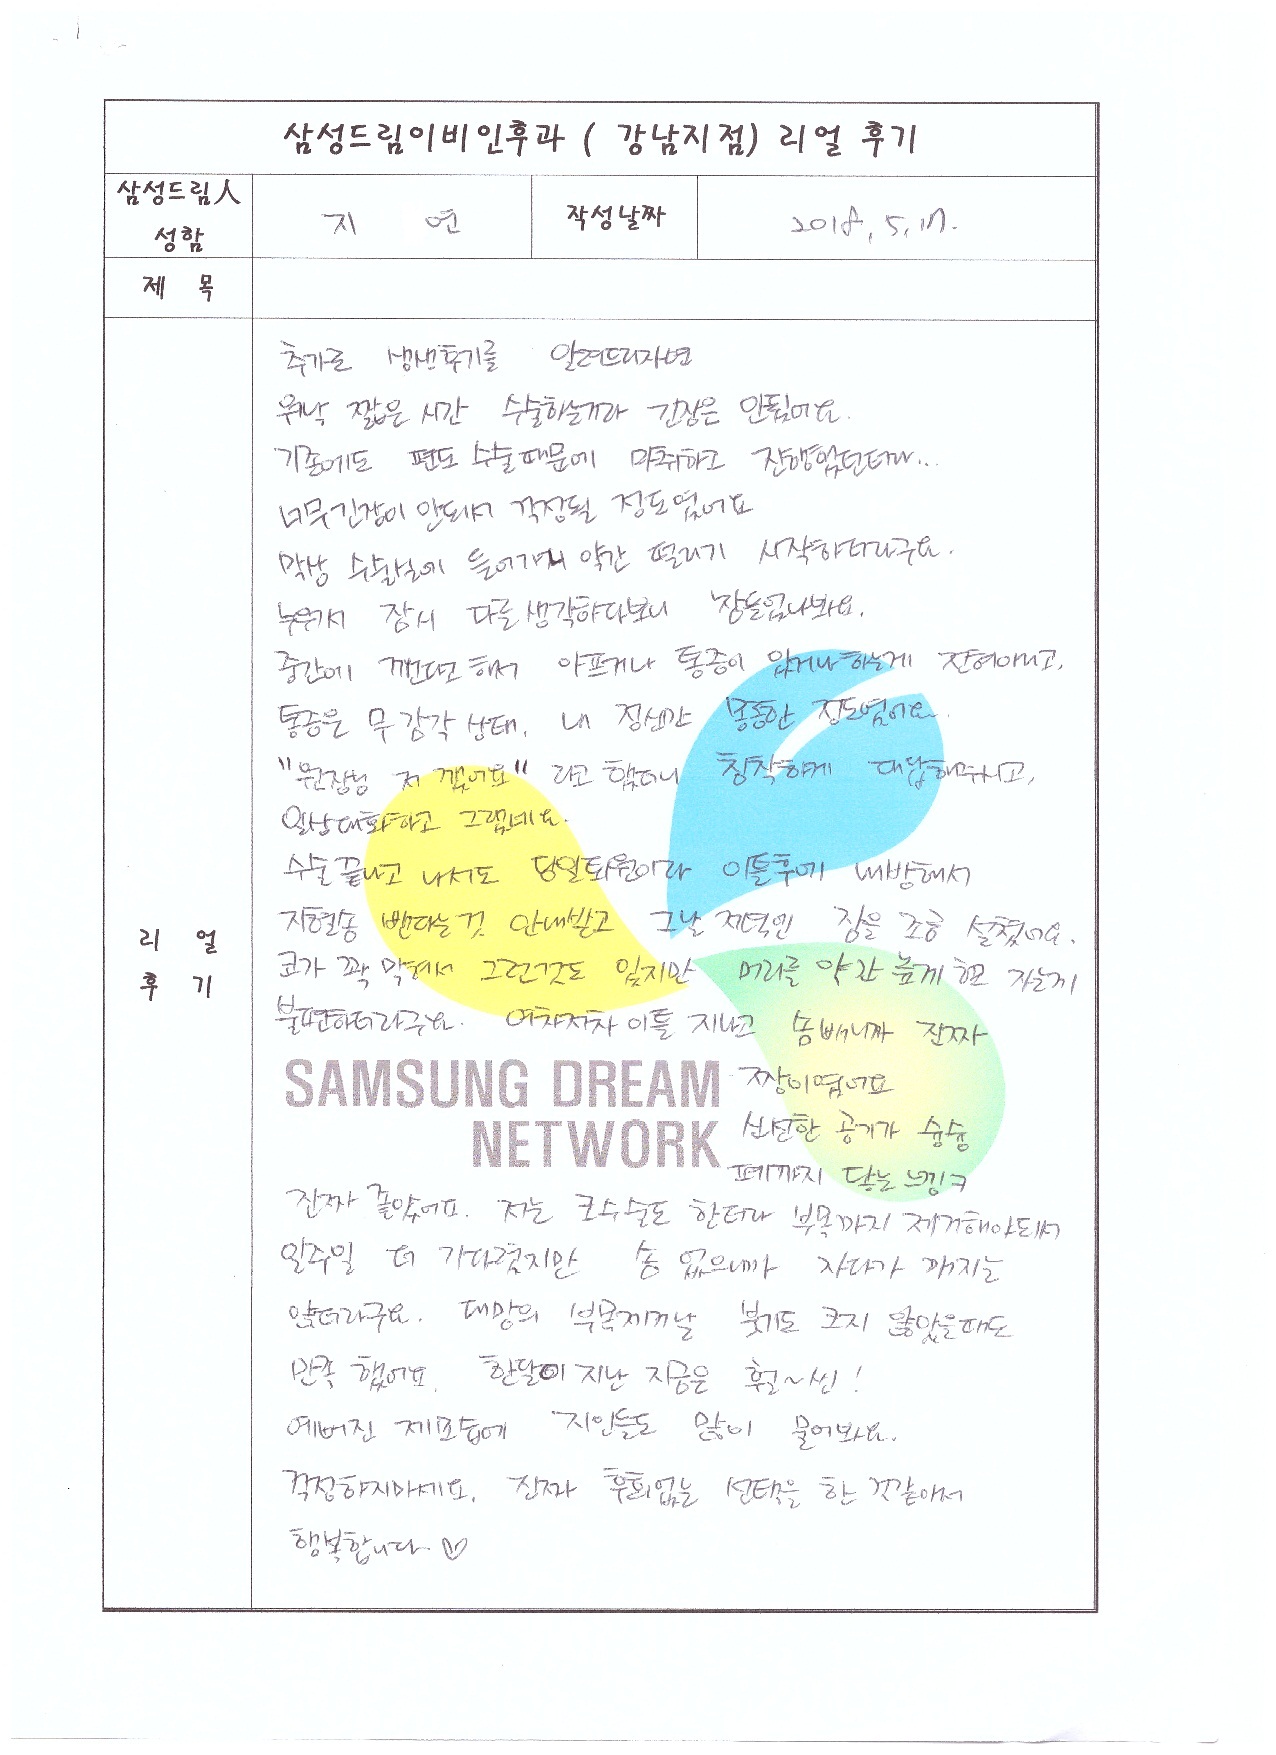 삼성드림이비인후과 ( 강남지점) 리얼 후기
삼성드림人
성함
지 연
작성날짜
2018. 5. 17.
제 목
리 얼
후 기
추가로 생생후기를 알려드리자면
워낙 짧은 시간 수술하는거라 긴장은 안됬어요.
기존에도 편도 수술때문에 마취하고 진행했던터라...
너무긴장이 안되서 걱정될 정도였어요
막상 수술실에 들어가니 약간 떨리기 시작하더라구요.
누워서 잠시 다른생각하다보니 잠들었나봐요.
중간에 깬다고해서 아프거나 통증이 있거나하는게 전혀아니고,
통증은 무감각 상태, 내 정신만 몽롱한 정도였어요.
"원장님 저 깼어요" 라고 했더니 침착하게 대답해주시고,
일상대화하고 그랬네요.
수술끝나고 나서도 당일퇴원이라 이틀후에 내방해서
지혈솜 뺀다는것 안내받고 그날 저녁엔 잠을 조금 설쳤어요.
코가 꽉 막혀서 그런것도 있지만 머리를 약간 높게하고 자는게
불편하더라구요. 여차저차 이틀 지나고 솜빼니까 진짜
짱이였어요
신선한 공기가 슝슝
폐까지 닿는느낌ㅋ
진짜 좋았어요. 저는 코수술도 한터라 부목까지 제거해야되서
일주일 더 기다렸지만 솜 없으니까 자다가 깨지는
않더라구요. 대망의 부목제거날 붓기도 크지 않았을때도
만족 했어요. 한달이 지난 지금은 훨~씬!
예뻐진 제모습에 지인들도 많이 물어봐요.
걱정하지마세요. 진짜 후회없는 선택을 한 것같아서
행복합니다.♡
SAMSUNG DREAM
NETWORK